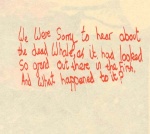 We were sorry to hear about
the dead whale, as it had looked
so grand out there in the Firth.
And what happened to it?